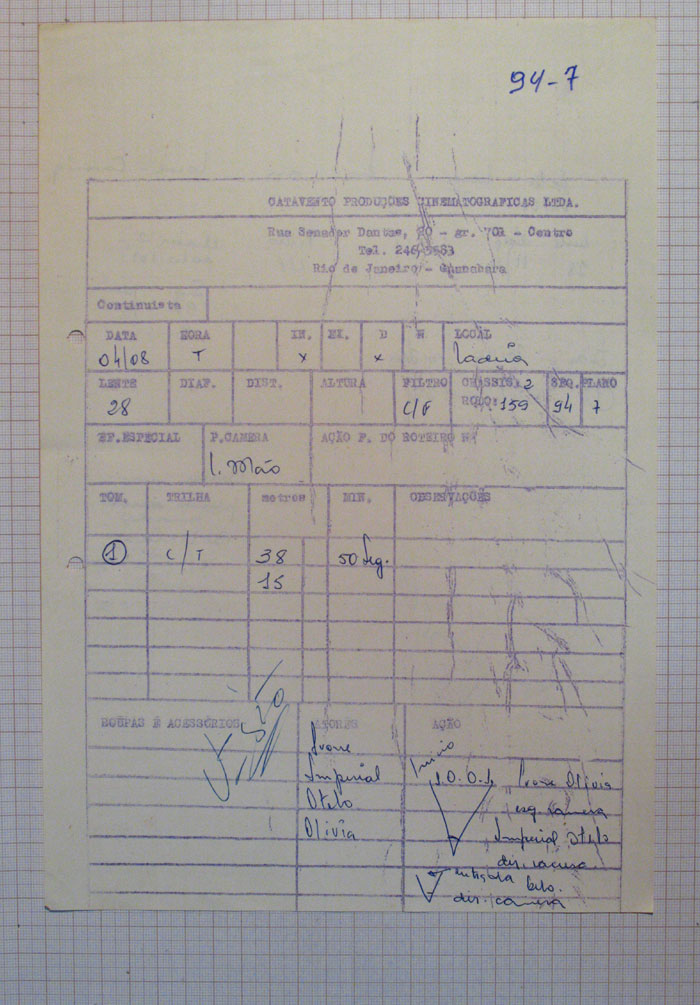 94-7
CATAVENTO PRODUÇÕES CINEMATOGRAFICAS LTDA.
Rua Senador Dantas, 20 - gr. 701 - Centro
Tel. 246
Rio de Janeiro - Guanabara
Continuista
DATA HORA IN. EX. D N LOCAL
04/08 T x x
LENTE DIAF. DIST. ALTURA FILTRO CHASSIS: 2 SEQ. PLANO
28 C/F ROLO: 159 94 7
EF.ESPECIAL P.CAMERA AÇÃO P. DO ROTEIRO Nº
l. Mão
TOM. TRILHA metros MIN. OBSERVAÇÕES
1 C/T 38 50 Seg.
15
ROUPAS E ACESSÓRIOS ATORES AÇÃO
Ivone Inicio
Imperial Ivone Olivia
Otelo esq. camera
Olivia Imperial Otelo
dir. camera
dir. camera